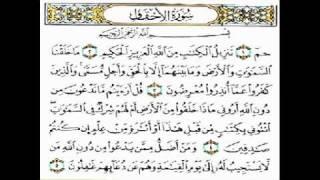 سُورَةُ الأَحْقَافِ
بِسْمِ اللَّهِ الرَّحْمَٰنِ الرَّحِيمِ
حمٓ ١ تَنزِيلُ ٱلْكِتَٰبِ مِنَ ٱللَّهِ ٱلْعَزِيزِ ٱلْحَكِيمِ ٢ مَا خَلَقْنَا
ٱلسَّمَٰوَٰتِ وَٱلْأَرْضَ وَمَا بَيْنَهُمَآ إِلَّا بِٱلْحَقِّ وَأَجَلٍ مُّسَمًّى وَٱلَّذِينَ
كَفَرُوا۟ عَمَّآ أُنذِرُوا۟ مُعْرِضُونَ ٣ قُلْ أَرَءَيْتُم مَّا تَدْعُونَ مِن
دُونِ ٱللَّهِ أَرُونِى مَاذَا خَلَقُوا۟ مِنَ ٱلْأَرْضِ أَمْ لَهُمْ شِرْكٌ فِى ٱلسَّمَٰوَٰتِ
ٱئْتُونِى بِكِتَٰبٍ مِّن قَبْلِ هَٰذَآ أَوْ أَثَٰرَةٍ مِّنْ عِلْمٍ إِن كُنتُمْ
صَٰدِقِينَ ٤ وَمَنْ أَضَلُّ مِمَّن يَدْعُوا۟ مِن دُونِ ٱللَّهِ مَن
لَّا يَسْتَجِيبُ لَهُۥٓ إِلَىٰ يَوْمِ ٱلْقِيَٰمَةِ وَهُمْ عَن دُعَآئِهِمْ غَٰفِلُونَ ٥